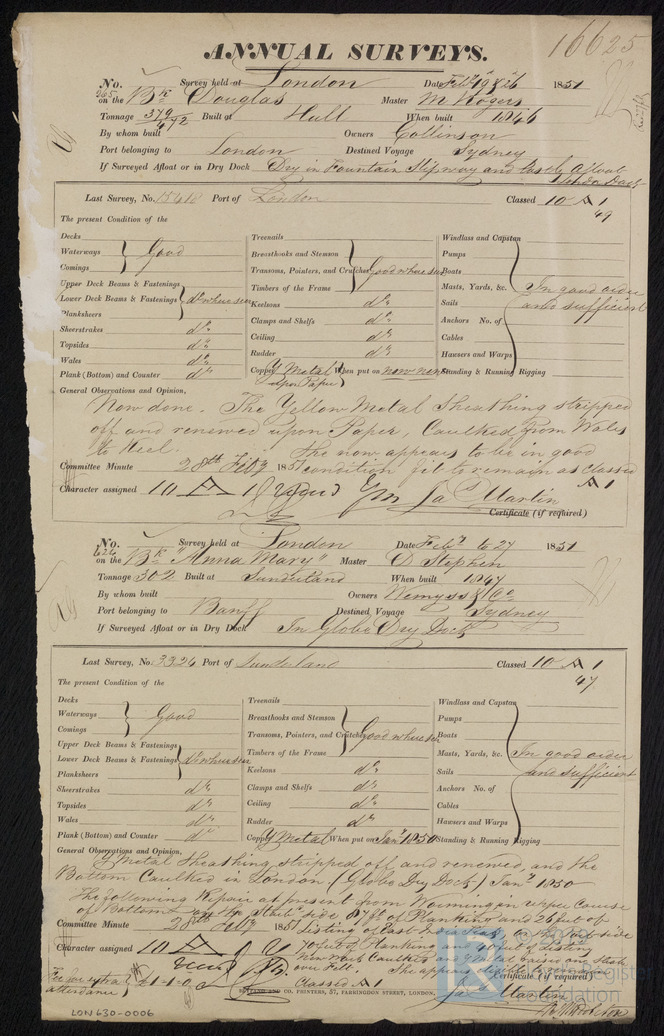 16625
ANNUAL SURVEYS.
No. 265 Survey held at London Date Feby 19 & 26 1851
on the Bk Douglas Master M. Rogers
Tonnage 379/472 Built at Hull When built 1846
By whom built Owners Collinson
Port belonging to London Destined Voyage Sydney
If Surveyed Afloat or in Dry Dock Dry in Fountain Slipway and partly afloat
London Dock
Last Survey, No. 15418 Port of London Classed 10 A 1
49
The present Condition of the
Decks
Waterways
Comings
Good
Upper Deck Beams & Fastenings
Lower Deck Beams & Fastenings
Planksheers
do where seen
Sheerstrakes do
Topsides do
Wales do
Plank (Bottom) and Counter do
Treenails
Breasthooks and Stemson
Transoms, Pointers, and Crutches
Timbers of the Frame
Good where seen
Keelsons do
Clamps and Shelfs do
Ceiling do
Rudder do
Copper Y Metal upon Paper When put on now new
Windlass and Capstan
Pumps
Boats
Masts, Yards, &c.
Sails
Anchors No. of
Cables
Hawsers and Warps
Standing & Running Rigging
In good order
and sufficient
General Observations and Opinion,
Now done. The Yellow Metal Sheathing stripped
off and renewed upon Paper, Caulked from Wales
to Keel. She now appears to be in good
condition fit to remain as classed
A 1
Committee Minute 28th Feby 1851
Character assigned 10 A 1
Jas Martin
Certificate (if required)
No. 426 Survey held at London Date Feby to 27 1851
on the Bk "Anna Mary" Master D Stephen
Tonnage 302 Built at Sunderland When built 1847
By whom built Owners Wemyss & Co
Port belonging to Banff Destined Voyage Sydney
If Surveyed Afloat or in Dry Dock In Globe Dry Dock
Last Survey, No. 3326 Port of Sunderland Classed 10 A 1
47
The present Condition of the
Decks
Waterways
Comings
Good
Upper Deck Beams & Fastenings
Lower Deck Beams & Fastenings
Planksheers
do where seen
Sheerstrakes do
Topsides do
Wales do
Plank (Bottom) and Counter do
Treenails
Breasthooks and Stemson
Transoms, Pointers, and Crutches
Timbers of the Frame
Good where seen
Keelsons do
Clamps and Shelfs do
Ceiling do
Rudder do
Copper Y Metal When put on Jany 1850
Windlass and Capstan
Pumps
Boats
Masts, Yards, &c.
Sails
Anchors No. of
Cables
Hawsers and Warps
Standing & Running Rigging
In good order
and sufficient
General Observations and Opinion,
Y Metal sheathing stripped off and renewed, and the
Bottom Caulked in London (Globe Dry Dock) Jany 1850
The following Repair at present from Worming in upper Course
of Bottom on the Starbd side 87 ft of Planking and 26 feet of
Listing of East India Teak, on the Port side
40 feet of Planking and 40 feet of Listing
over Felt. She appears
Classed A 1
Committee Minute 28th Feby 1851
Character assigned 10 A 1
Fee for extra
attendance £1-1-0
Certificate (if required)
Jas Martin
AND CO. PRINTERS, 37, FARRINGDON STREET, LONDON.
LON630-0006
Lloyd's Register
Foundation